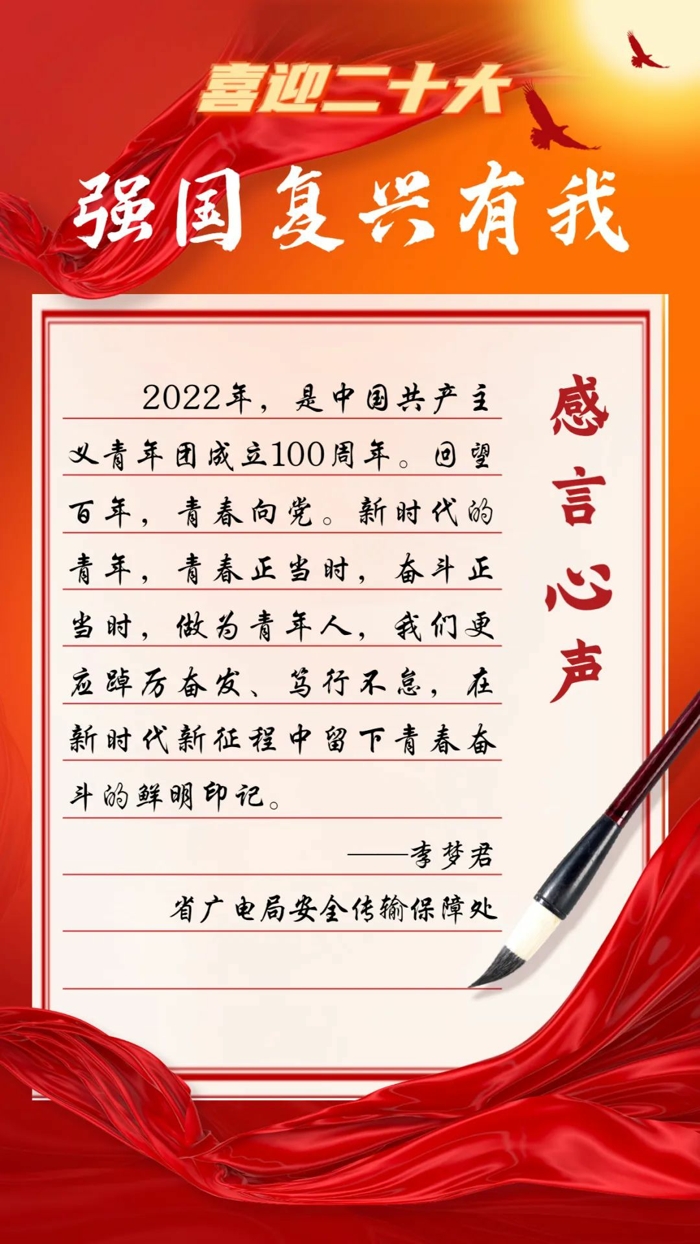 喜迎二十大
强国复兴有我
感言心声
2022年，是中国共产主
义青年团成立100周年。回望
百年，青春向党。新时代的
青年，青春正当时，奋斗正
当时，做为青年人，我们更
应踔厉奋发、笃行不怠，在
新时代新征程中留下青春奋
斗的鲜明印记。
——李梦君
省广电局安全传输保障处